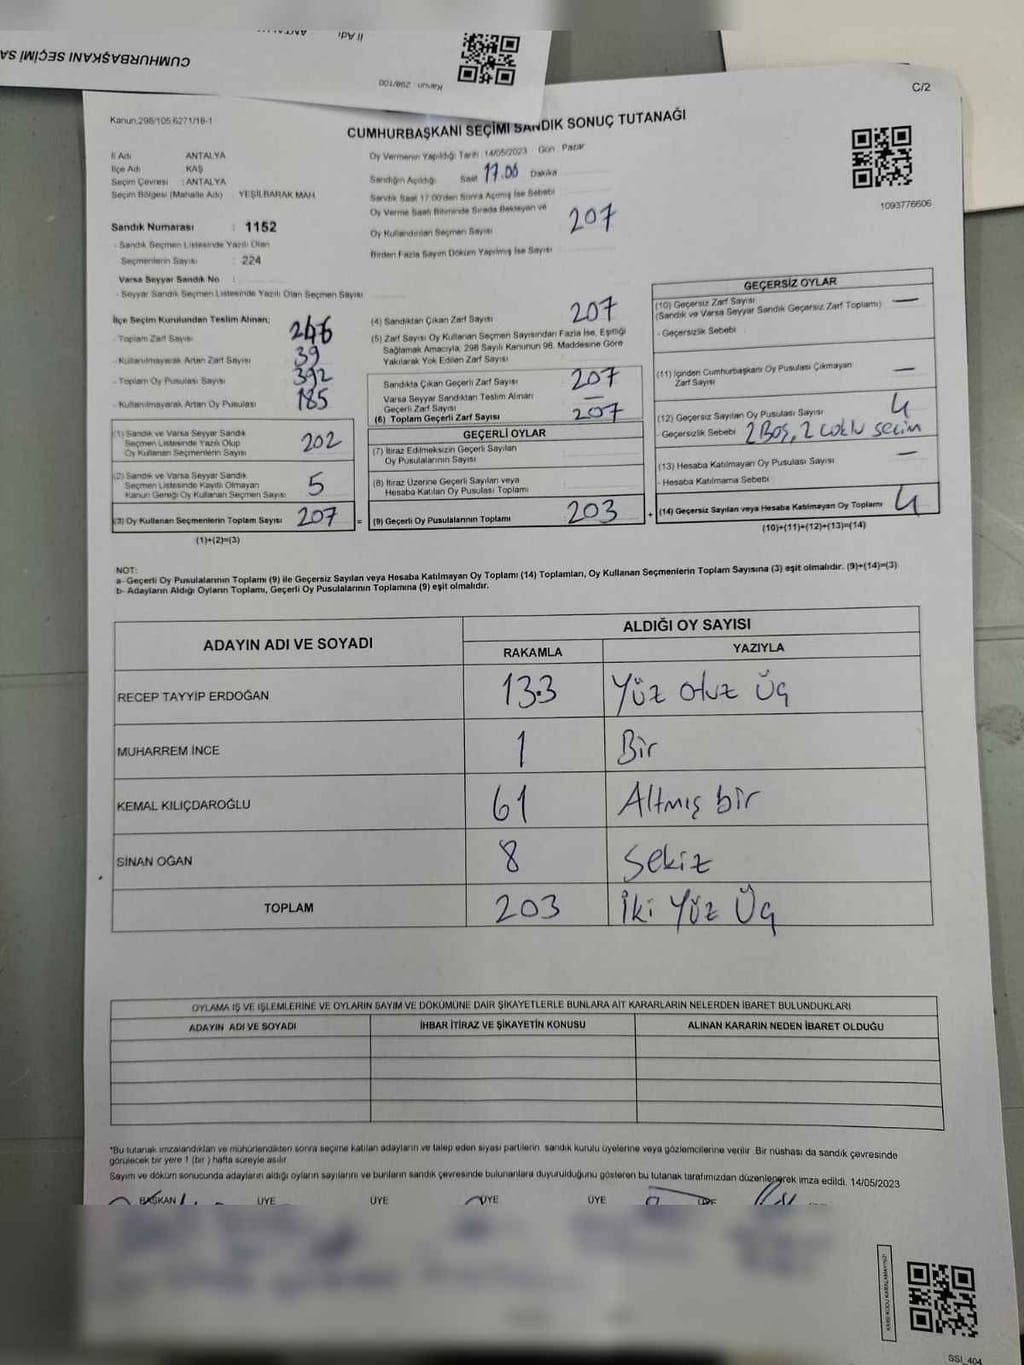 CUMHURBAŞKANI SEÇİMİ SA
İl Adı
Kanun: 298/100
C/2
Kanun:298/105,6271/18-1
CUMHURBAŞKANI SEÇİMİ SANDIK SONUÇ TUTANAĞI
İl Adı ANTALYA
İlçe Adı KAŞ
Seçim Çevresi : ANTALYA
Seçim Bölgesi (Mahalle Adı) YEŞİLBARAK MAH
Sandık Numarası : 1152
- Sandık Seçmen Listesinde Yazılı Olan
Seçmenlerin Sayısı : 224
Varsa Seyyar Sandık No :
- Seyyar Sandık Seçmen Listesinde Yazılı Olan Seçmen Sayısı
Oy Vermenin Yapıldığı Tarih 14/05/2023 Gün Pazar
Sandığın Açıldığı Saat 17.06 Dakika
Sandık Saat 17:00'den Sonra Açılmış İse Sebebi
Oy Verme Saati Bitiminde Sırada Bekleyen ve
Oy Kullandırılan Seçmen Sayısı 207
Birden Fazla Sayım Döküm Yapılmış İse Sayısı
1093776606
İlçe Seçim Kurulundan Teslim Alınan;
- Toplam Zarf Sayısı 246
- Kullanılmayarak Artan Zarf Sayısı 39
- Toplam Oy Pusulası Sayısı 392
- Kullanılmayarak Artan Oy Pusulası 185
(1) Sandık ve Varsa Seyyar Sandık
Seçmen Listesinde Yazılı Olup
Oy Kullanan Seçmenlerin Sayısı 202
(2) Sandık ve Varsa Seyyar Sandık
Seçmen Listesinde Kayıtlı Olmayan
Kanun Gereği Oy Kullanan Seçmen Sayısı 5
(3) Oy Kullanan Seçmenlerin Toplam Sayısı 207 =
(1)+(2)=(3)
(4) Sandıktan Çıkan Zarf Sayısı 207
(5) Zarf Sayısı Oy Kullanan Seçmen Sayısından Fazla İse, Eşitliği
Sağlamak Amacıyla, 298 Sayılı Kanunun 98. Maddesine Göre
Yakılarak Yok Edilen Zarf Sayısı
Sandıkta Çıkan Geçerli Zarf Sayısı 207
Varsa Seyyar Sandıktan Teslim Alınan
Geçerli Zarf Sayısı —
(6) Toplam Geçerli Zarf Sayısı 207
GEÇERLİ OYLAR
(7) İtiraz Edilmeksizin Geçerli Sayılan
Oy Pusulalarının Sayısı
(8) İtiraz Üzerine Geçerli Sayılan veya
Hesaba Katılan Oy Pusulası Toplamı
(9) Geçerli Oy Pusulalarının Toplamı 203 +
GEÇERSİZ OYLAR
(10) Geçersiz Zarf Sayısı —
(Sandık ve Varsa Seyyar Sandık Geçersiz Zarf Toplamı)
- Geçersizlik Sebebi
(11) İçinden Cumhurbaşkanı Oy Pusulası Çıkmayan
Zarf Sayısı —
(12) Geçersiz Sayılan Oy Pusulası Sayısı 4
- Geçersizlik Sebebi 2 Boş, 2 çoklu seçim
(13) Hesaba Katılmayan Oy Pusulası Sayısı —
- Hesaba Katılmama Sebebi
(14) Geçersiz Sayılan veya Hesaba Katılmayan Oy Toplamı 4
(10)+(11)+(12)+(13)=(14)
NOT:
a- Geçerli Oy Pusulalarının Toplamı (9) ile Geçersiz Sayılan veya Hesaba Katılmayan Oy Toplamı (14) Toplamları, Oy Kullanan Seçmenlerin Toplam Sayısına (3) eşit olmalıdır. (9)+(14)=(3)
b- Adayların Aldığı Oyların Toplamı, Geçerli Oy Pusulalarının Toplamına (9) eşit olmalıdır.
ADAYIN ADI VE SOYADI ALDIĞI OY SAYISI
RAKAMLA YAZIYLA
RECEP TAYYİP ERDOĞAN 133 Yüz otuz Üç
MUHARREM İNCE 1 Bir
KEMAL KILIÇDAROĞLU 61 Altmış bir
SİNAN OĞAN 8 Sekiz
TOPLAM 203 İki Yüz Üç
OYLAMA İŞ VE İŞLEMLERİNE VE OYLARIN SAYIM VE DÖKÜMÜNE DAİR ŞİKAYETLERLE BUNLARA AİT KARARLARIN NELERDEN İBARET BULUNDUKLARI
ADAYIN ADI VE SOYADI İHBAR İTİRAZ VE ŞİKAYETİN KONUSU ALINAN KARARIN NEDEN İBARET OLDUĞU
*Bu tutanak imzalandıktan ve mühürlendikten sonra seçime katılan adayların ve talep eden siyasi partilerin, sandık kurulu üyelerine veya gözlemcilerine verilir. Bir nüshası da sandık çevresinde
görülecek bir yere 1 (bir) hafta süreyle asılır.
Sayım ve döküm sonucunda adayların aldığı oyların sayılarını ve bunların sandık çevresinde bulunanlara duyurulduğunu gösteren bu tutanak tarafımızdan düzenlenerek imza edildi. 14/05/2023
BAŞKAN ÜYE ÜYE ÜYE ÜYE ÜYE
KARE KODU KARALAMAYINIZ!
SSI_404